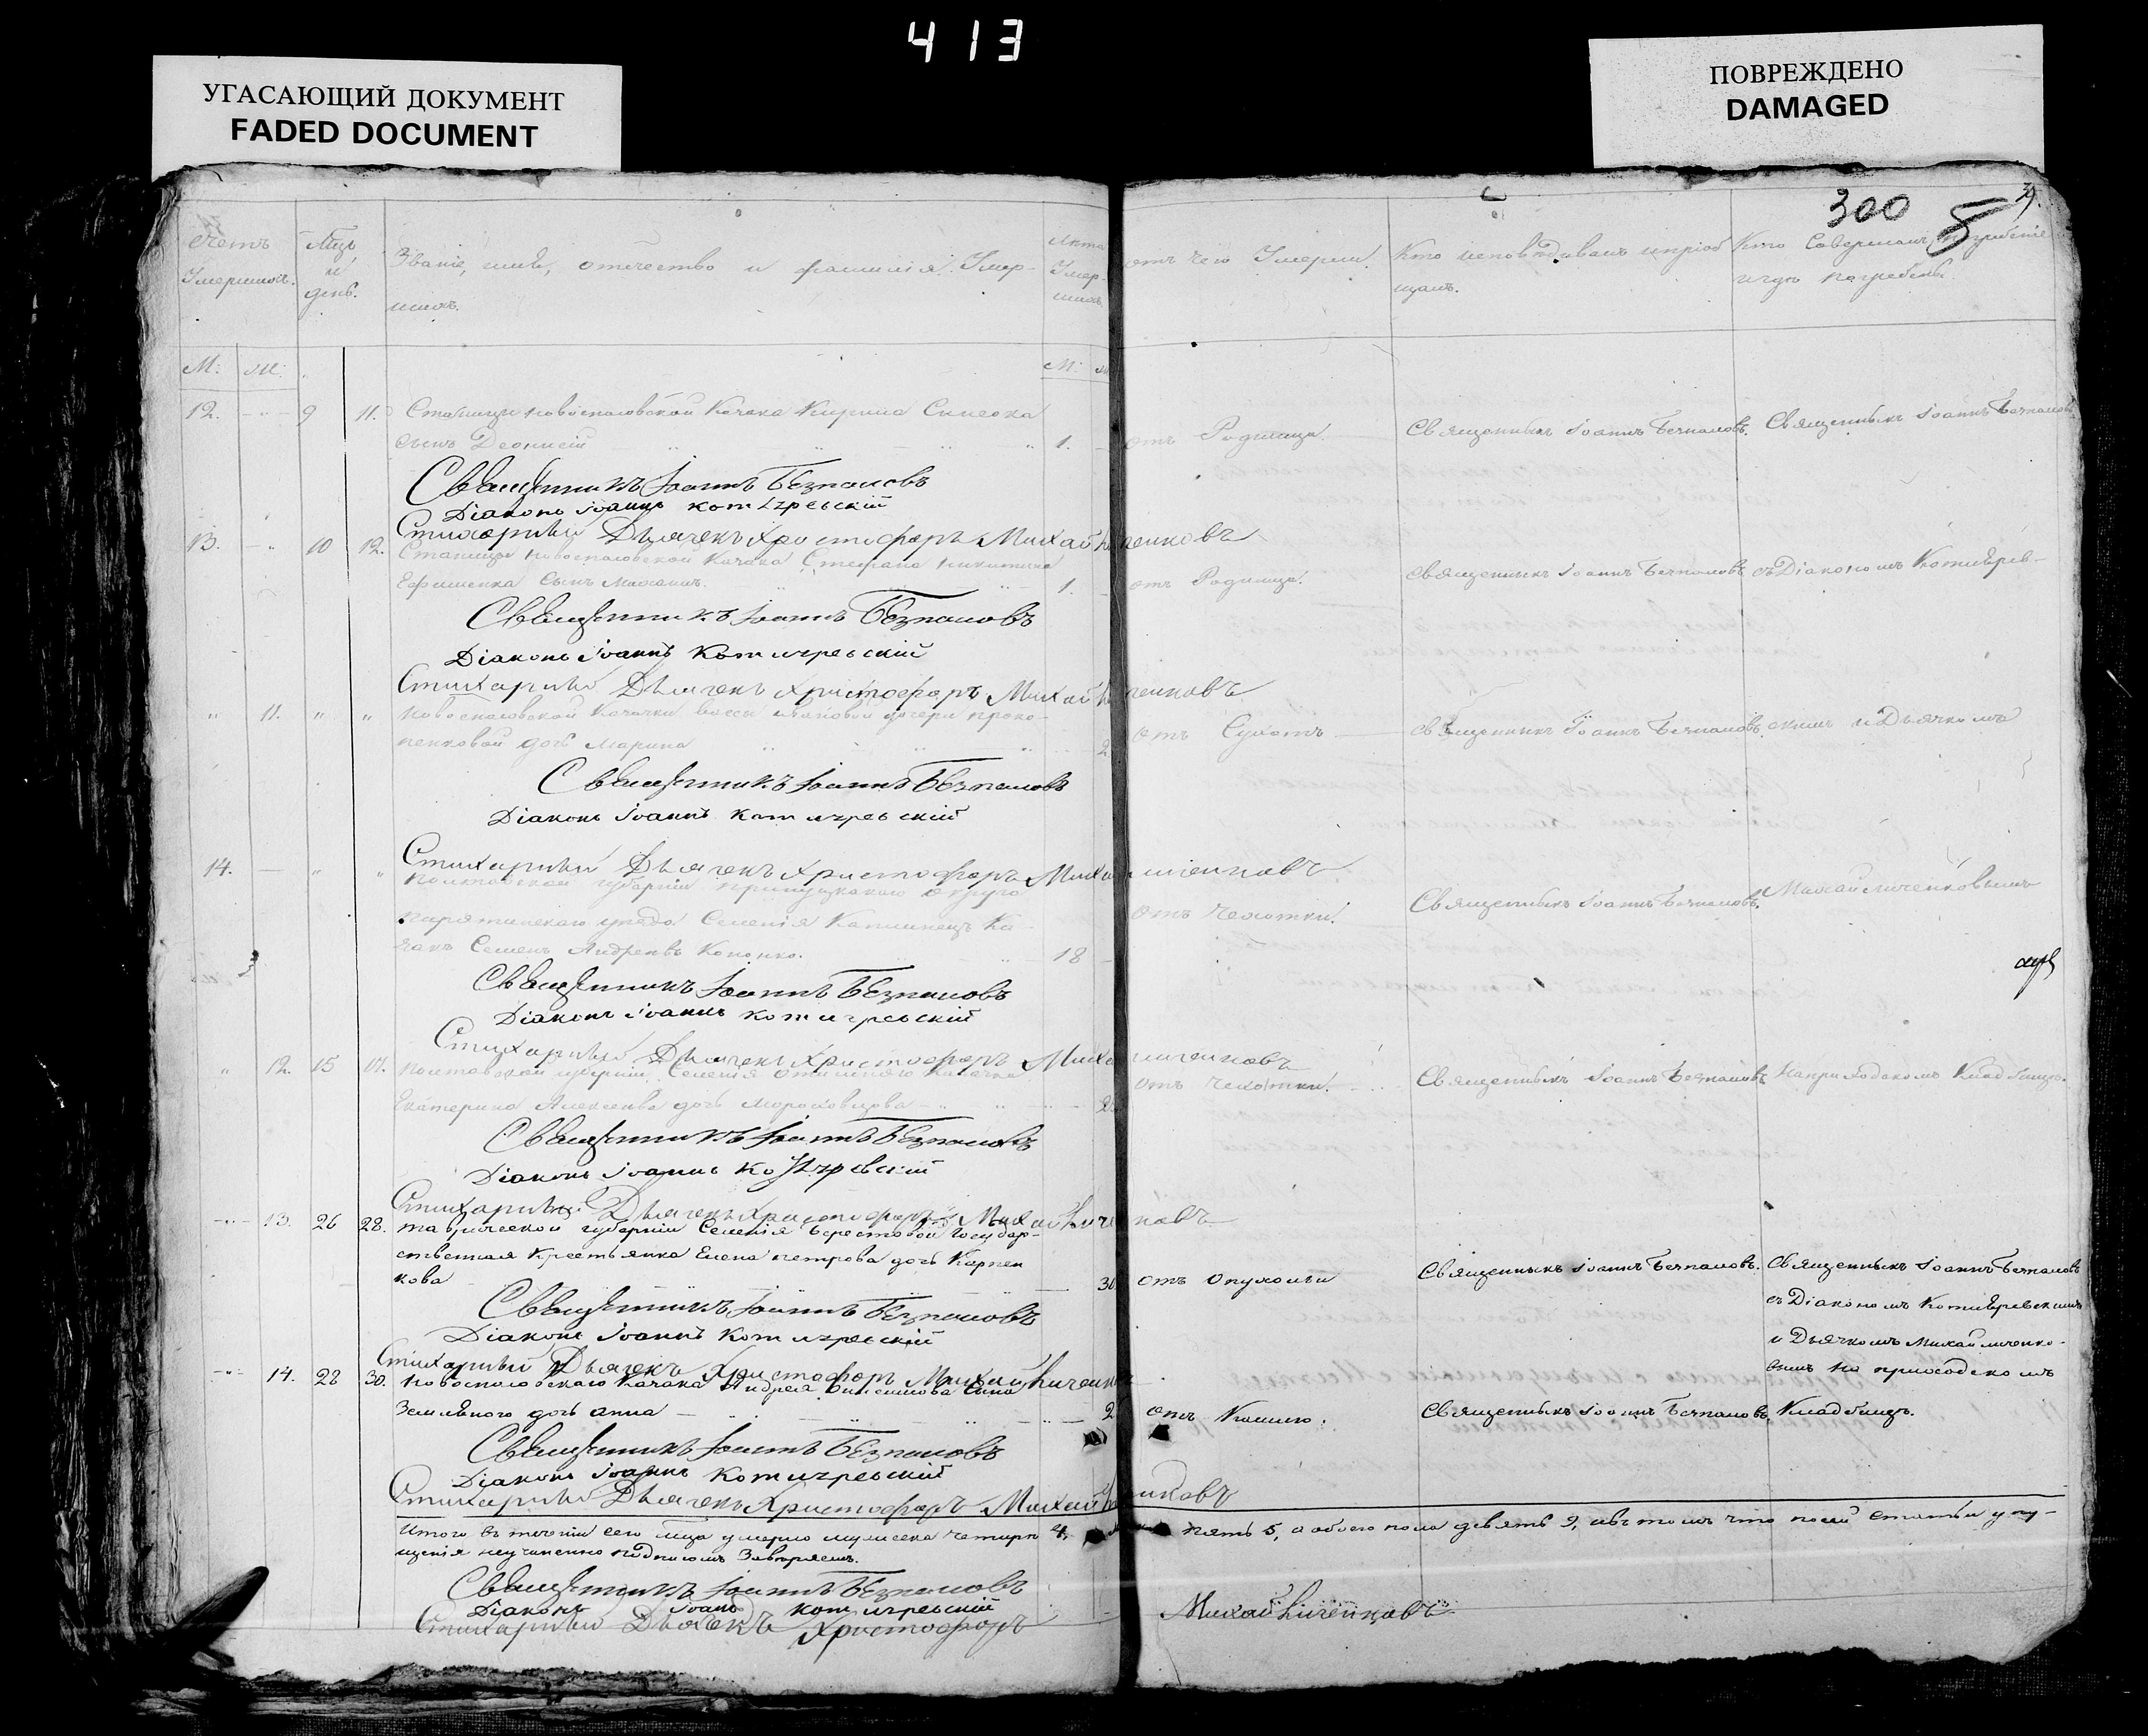 413
УГАСАЮЩИЙ ДОКУМЕНТ
FADED DOCUMENT
ПОВРЕЖДЕНО
DAMAGED
300
Счетъ Умершихъ.
Мцъ и день.
Званіе, имя, отечество и фамилія Умершихъ.
Лѣта Умершихъ
отъ чего Умерли.
Кто исповѣдывалъ и пріобщалъ.
Кто Совершалъ погребеніе и гдѣ погребены.
М:
М:
12. 9 11. Станицы Новоспасовской Козака Кирила
сынъ Деонисій 1. отъ Родимца. Священникъ Іоаннъ Безпаловъ. Священникъ Іоаннъ Безпаловъ
Священникъ Іоаннъ Безпаловъ
Діаконъ Іоаннъ Котляревскій
Стихарный Дьячекъ Христофоръ Михайличенковъ
13. 10 12. Станицы Новоспасовской Козака Стефана Никитина
Ефименка Сынъ 1. отъ Родимца. Священникъ Іоаннъ Безпаловъ съ Діакономъ Котлярев-
Священникъ Іоаннъ Безпаловъ
Діаконъ Іоаннъ Котляревскій
Стихарный Дьячекъ Христофоръ Михайличенковъ
11. Новоспасовской Козачки Ивановой дочери Проко-
пенковой дочь Марина 2 отъ Сухотъ Священникъ Іоаннъ Безпаловъ. скимъ и Дьячкомъ
Священникъ Іоаннъ Безпаловъ
Діаконъ Іоаннъ Котляревскій
Стихарный Дьячекъ Христофоръ Михайличенковъ
14. Полтавской губерніи Прилуцкаго округа
Пирятинскаго уѣзда Селенія Ка-
закъ Семенъ Андреевъ Кононко. 18 отъ Чехотки. Священникъ Іоаннъ Безпаловъ. Михайличенковымъ
Священникъ Іоаннъ Безпаловъ
Діаконъ Іоаннъ Котляревскій
Стихарный Дьячекъ Христофоръ Михайличенковъ
12. 15 17. Полтавской губерніи Селенія Козачка
Екатерина Алексеева дочь отъ Чехотки. Священникъ Іоаннъ Безпаловъ На приходскомъ Кладбищѣ.
Священникъ Іоаннъ Безпаловъ
Діаконъ Іоаннъ Котляревскій
Стихарный Дьячекъ Христофоръ Михайличенковъ
13. 26 28. Таврической губерніи Селенія Берестовой Государ-
ственная Крестьянка Елена Петрова дочь Карпен
кова 30 отъ Опухоли Священникъ Іоаннъ Безпаловъ. Священникъ Іоаннъ Безпаловъ
съ Діакономъ Котляревскимъ
и Дьячкомъ Михайличенко-
вымъ на приходскомъ
Кладбищѣ.
Священникъ Іоаннъ Безпаловъ
Діаконъ Іоаннъ Котляревскій
Стихарный Дьячекъ Христофоръ Михайличенковъ
14. 28 30. Новоспасовскаго Козака Андрея
дочь Анна 2 отъ Кашлю. Священникъ Іоаннъ Безпаловъ.
Священникъ Іоаннъ Безпаловъ
Діаконъ Іоаннъ Котляревскій
Стихарный Дьячекъ Христофоръ Михайличенковъ
Итого въ теченіи сего мца умерло мужеска четыри 4, пять 5, а обоего пола девять 9, а въ томъ что посей статьи упу-
щенія неучинено подписомъ Завѣряемъ.
Священникъ Іоаннъ Безпаловъ
Діаконъ Іоаннъ Котляревскій
Стихарный Дьячекъ Христофоръ Михайличенковъ